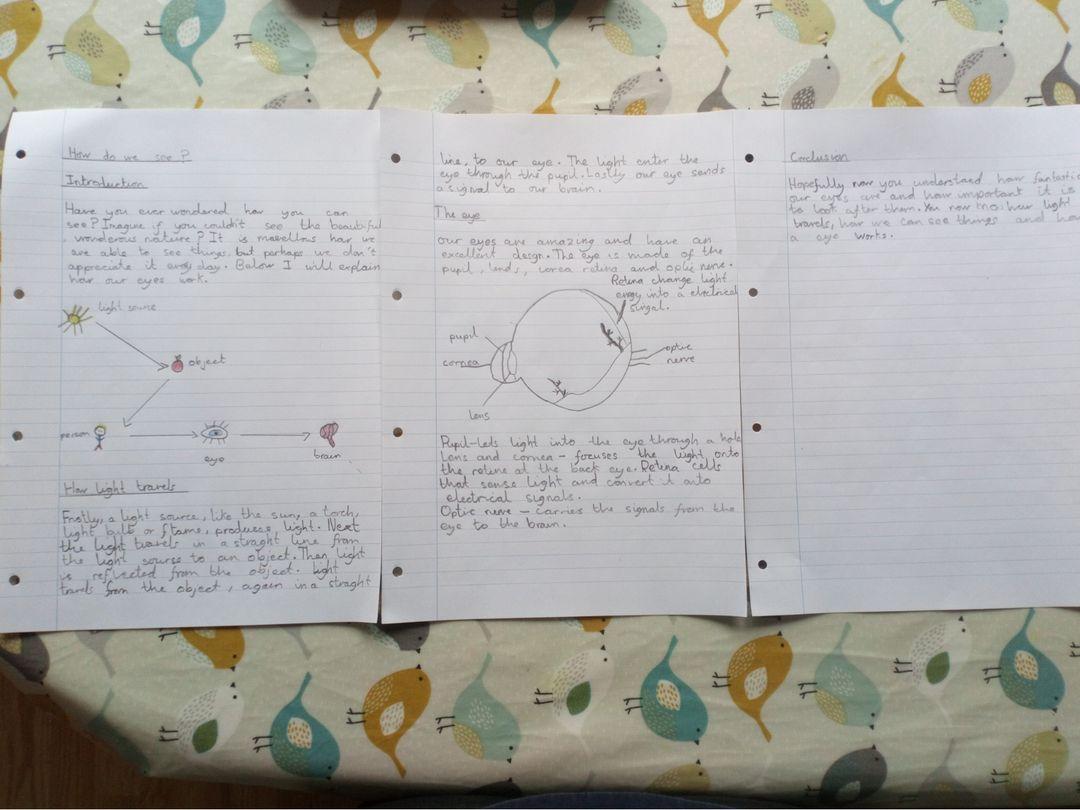 How do we see?
Introduction
Have you ever wondered how you can
see? Imagine if you couldn't see the beautiful
, wonderous nature? It is marellous how we
are able to see things, but perhaps we don't
appreciate it every day. Below I will explain
how our eyes work.
light source
object
person
eye
brain
How light travels
Firstly, a light source, like the sun, a torch,
light bulb or flame, produces light. Next
the light travels in a straght line from
the light source to an object. Then light
is reflected from the object. light
travels from the object, again in a straght
line, to our eye. The light enter the
eye through the pupil. Lastly our eye sends
a signal to our brain.
The eye
our eyes are amazing and have an
excellent desgn. The eye is made of the
pupil, lends, corea retina and optic nerve.
Retina change light
enrgy into a electrical
sirgal.
pupil
cornea
lens
optic
nerve
Pupil-lets light into the eye through a hole
Lens and cornea - focuses the light onto
the retine at the back eye. Retina cells
that sense light and convert it into
electrical signals.
Optic nerve - carries the signals from the
eye to the brain.
Conclusion
Hopefully now you understaed how fantastic
our eyes are and how important it is
to look after them. You now kno how light
travels, how we can see things and how
a eye works.